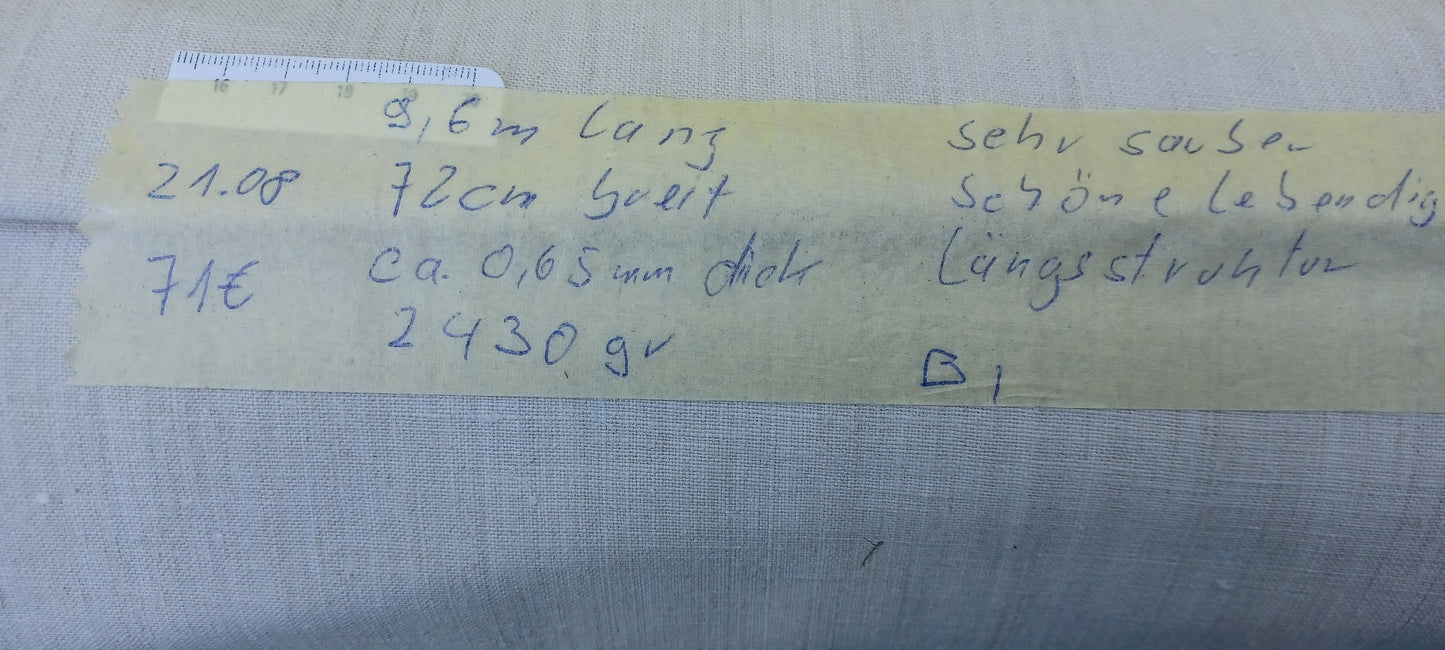 16 17 18
9,6m lang
21.08 72cm breit
71€ ca. 0,65mm dick
2430 gr
sehr sauber
schöne lebendig
Längsstruktur
B1